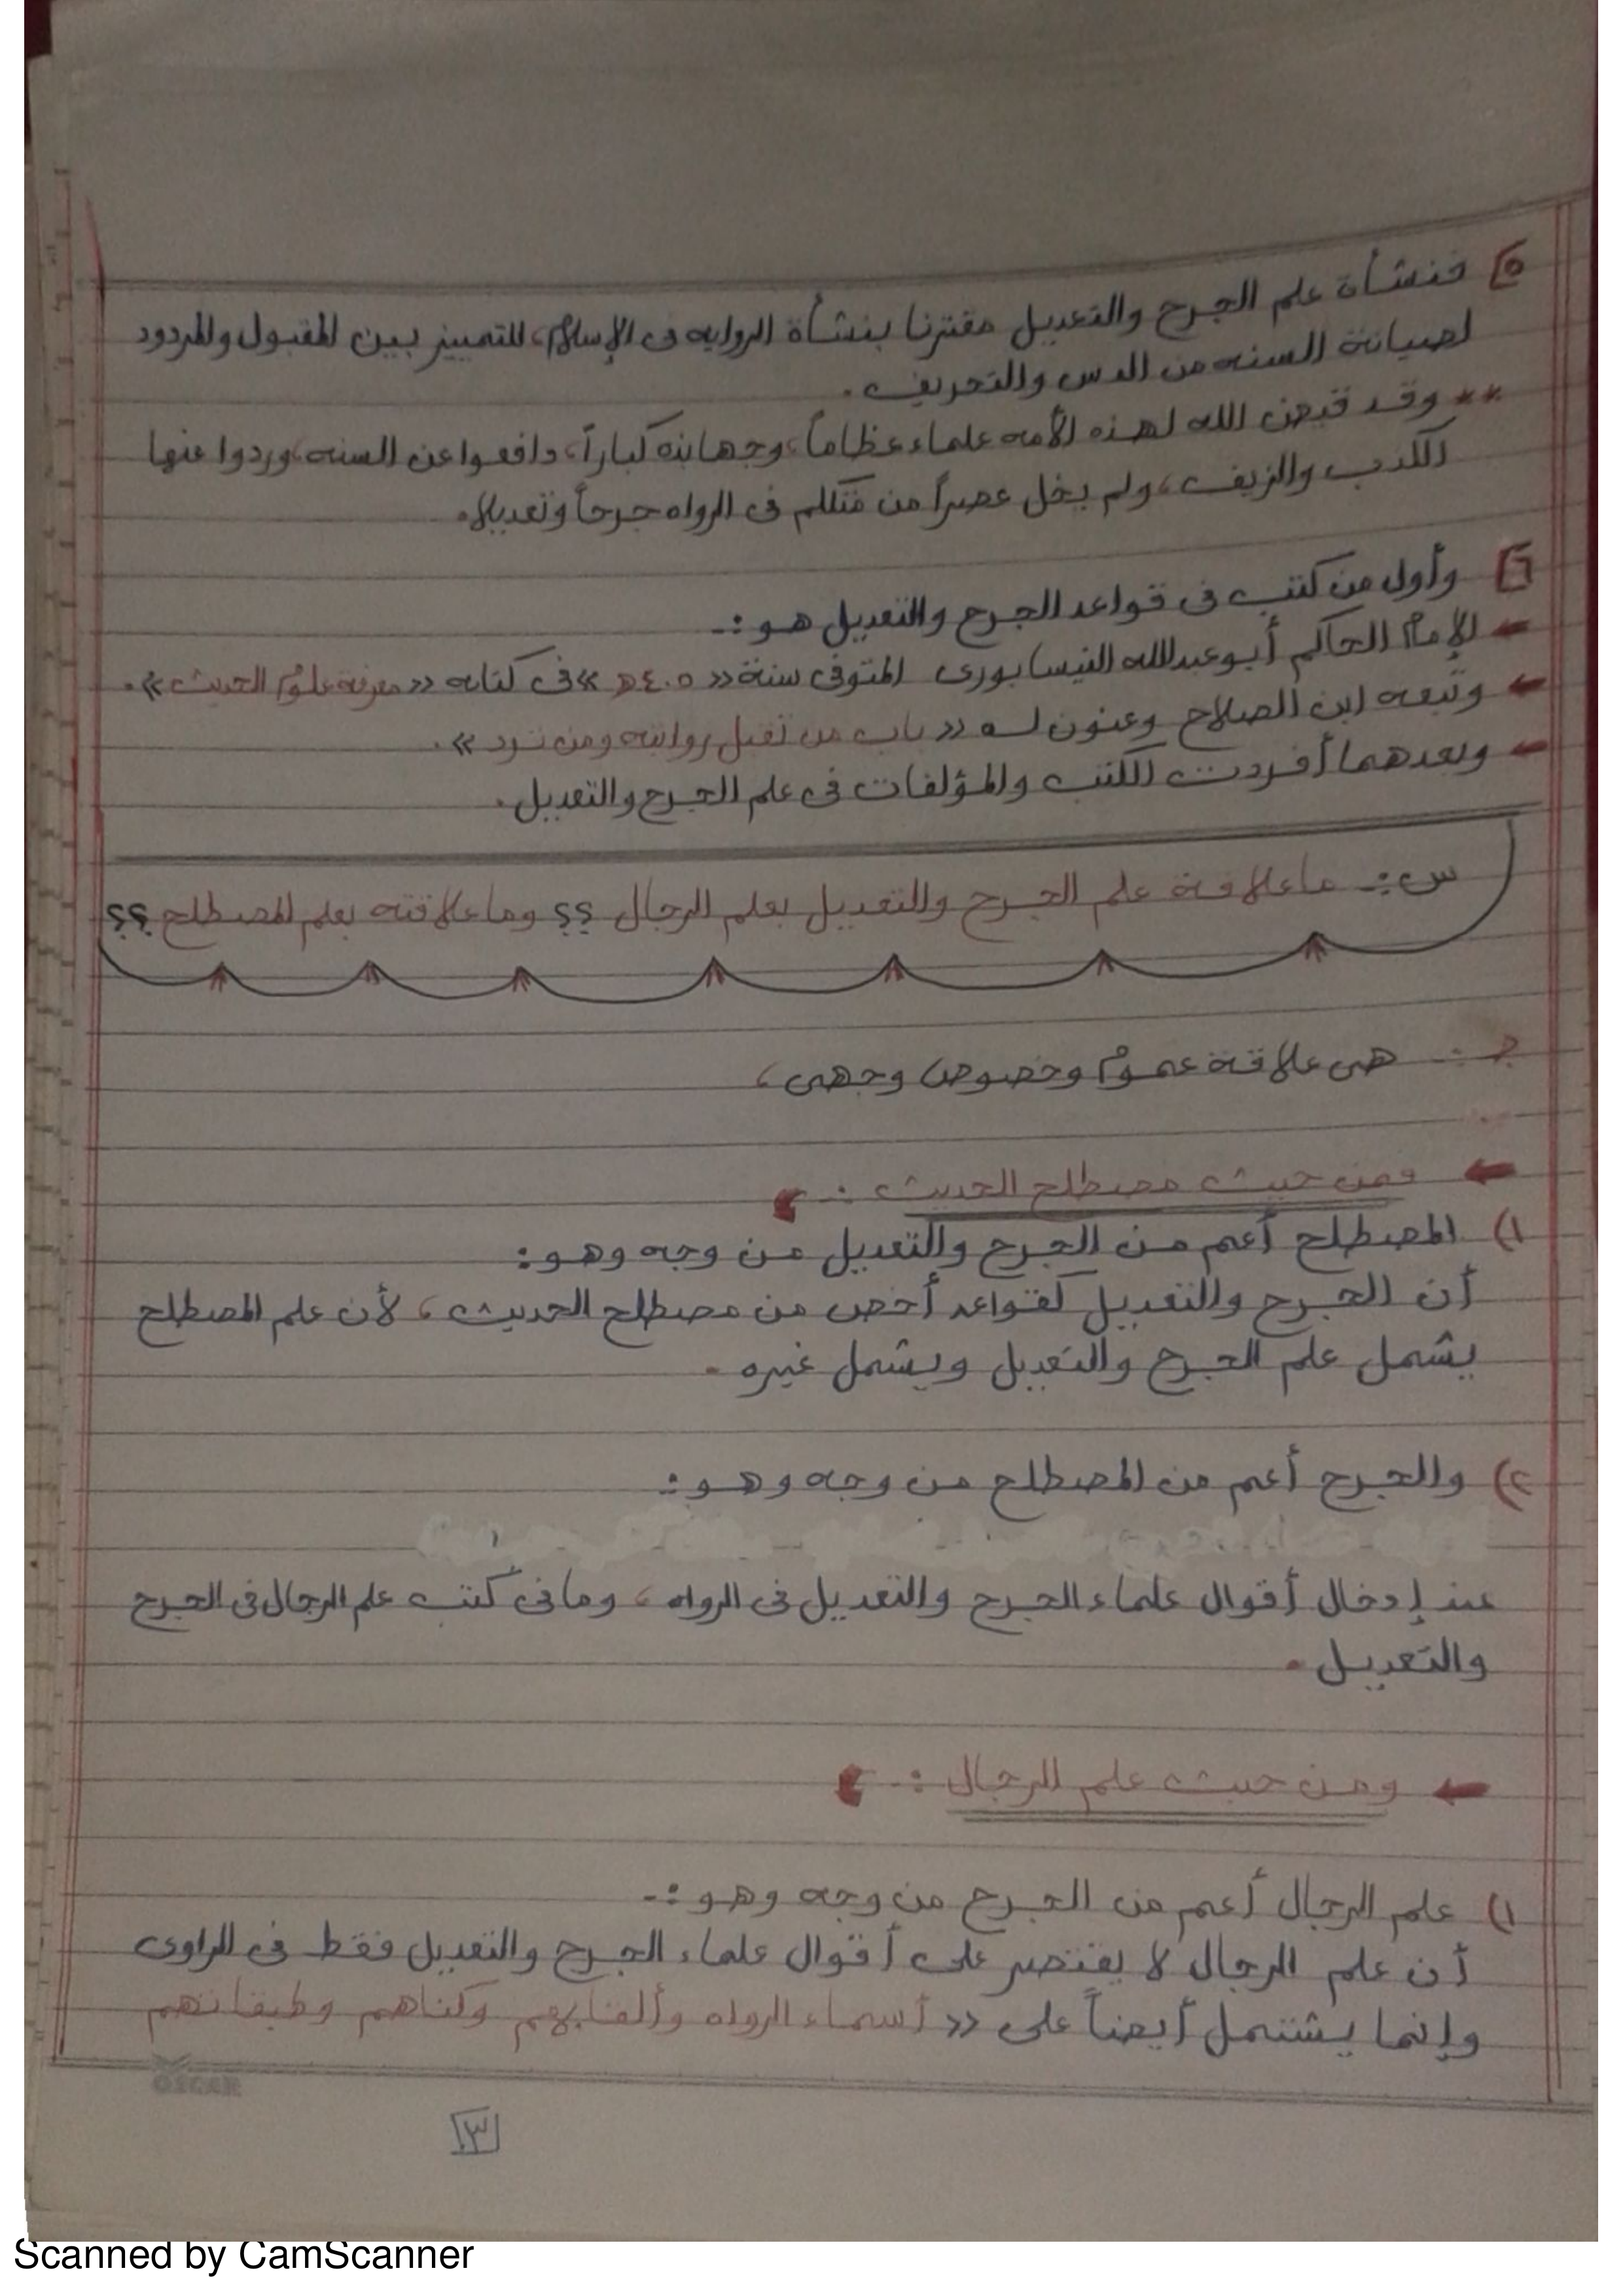 ٥ فنشأة علم الجرح والتعديل مقترنا بنشأة الروايه فى الإسلام، للتمييز بين المقبول والمردود
لصيانة السنه من الدس والتحريف.
** وقد قيض الله لهذه الأمه علماء عظاماً، وجهابذه كباراً، دافعوا عن السنه، وردوا عنها
الكذب والزيف، ولم يخل عصراً من متكلم فى الرواه جرحاً وتعديلا.
٦ وأول من كتب فى قواعد الجرح والتعديل هو :-
← الإمام الحاكم أبو عبدالله النيسابورى المتوفى سنة «٤٠٥ هـ» فى كتابه «معرفة علوم الحديث».
← وتبعه ابن الصلاح وعنون له «باب من تقبل روايته ومن ترد».
← وبعدهما أفردت الكتب والمؤلفات فى علم الجرح والتعديل.
س :- ما علاقة علم الجرح والتعديل بعلم الرجال ؟؟ وما علاقته بعلم المصطلح ؟؟
ج :- هى علاقة عموم وخصوص وجهى،
← فمن حيث مصطلح الحديث :-
١) المصطلح أعم من الجرح والتعديل من وجه وهو :
أن الجرح والتعديل كقواعد أخص من مصطلح الحديث، لأن علم المصطلح
يشمل علم الجرح والتعديل ويشمل غيره.
٢) والجرح أعم من المصطلح من وجه وهو :-
عند إدخال أقوال علماء الجرح والتعديل فى الرواه، وما فى كتب علم الرجال فى الجرح
والتعديل.
← ومن حيث علم الرجال :-
١) علم الرجال أعم من الجرح من وجه وهو :-
أن علم الرجال لا يقتصر على أقوال علماء الجرح والتعديل فقط فى الراوى
وإنما يشتمل أيضاً على «أسماء الرواه وألقابهم وكناهم وطبقاتهم
OSCAR
٣
Scanned by CamScanner